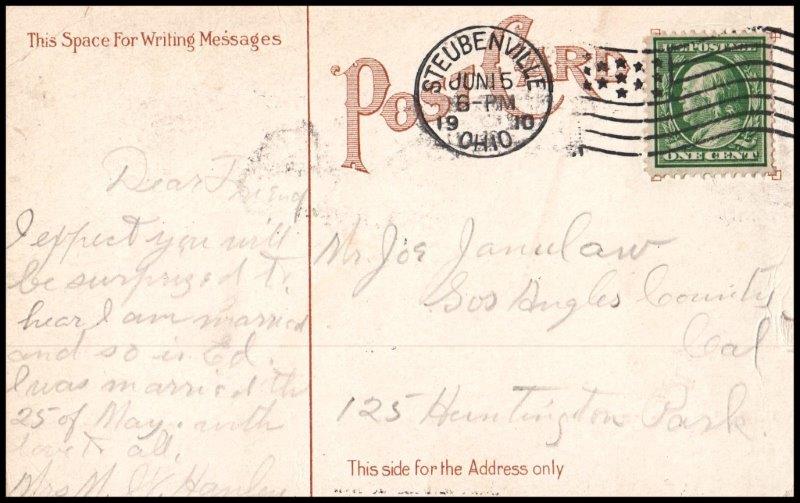 This Space For Writing Messages
POST CARD
STEUBENVILLE
JUN 15
6-PM
1910
OHIO
U.S. POSTAGE
ONE CENT
Dear Friend
I expect you will
be surprized to
hear I am married
and so is Ed.
I was married the
25 of May. with
love to all,
Mrs
Mr Joe
Los Angles County
Cal
125 Huntington Park.
This side for the Address only